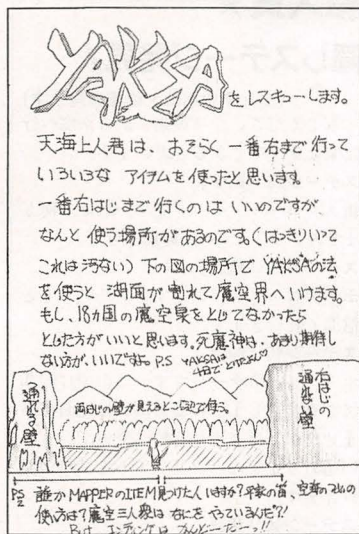 YAKSAをレスキューします。
天海上人君は、おそらく一番右まで行って
いろいろな アイテムを使ったと思います。
一番右はじまで行くのは いいのですが
なんと 使う場所があるのです。(はっきりいって
これは汚ない) 下の図の場所で YAKSAの法
を使うと 湖面が割れて魔空界へいけます。
もし、18ヵ国の魔空臭をとしてなかったら
とした方がいいと思います。死魔神は、あまり期待し
ない方が、いいですよ。P.S YAKSAは
十日で とけたよん
通れる壁
両はじの壁が見えるとこ で使う。
右はじの
通れない壁
PS2 誰か MAPPERのITEM見つけた人いますか? 平家の笛、空海の の
使い方は? 魔空三人衆は なにを やっているんだ?!
But エンディングは かんどーだーっ!!